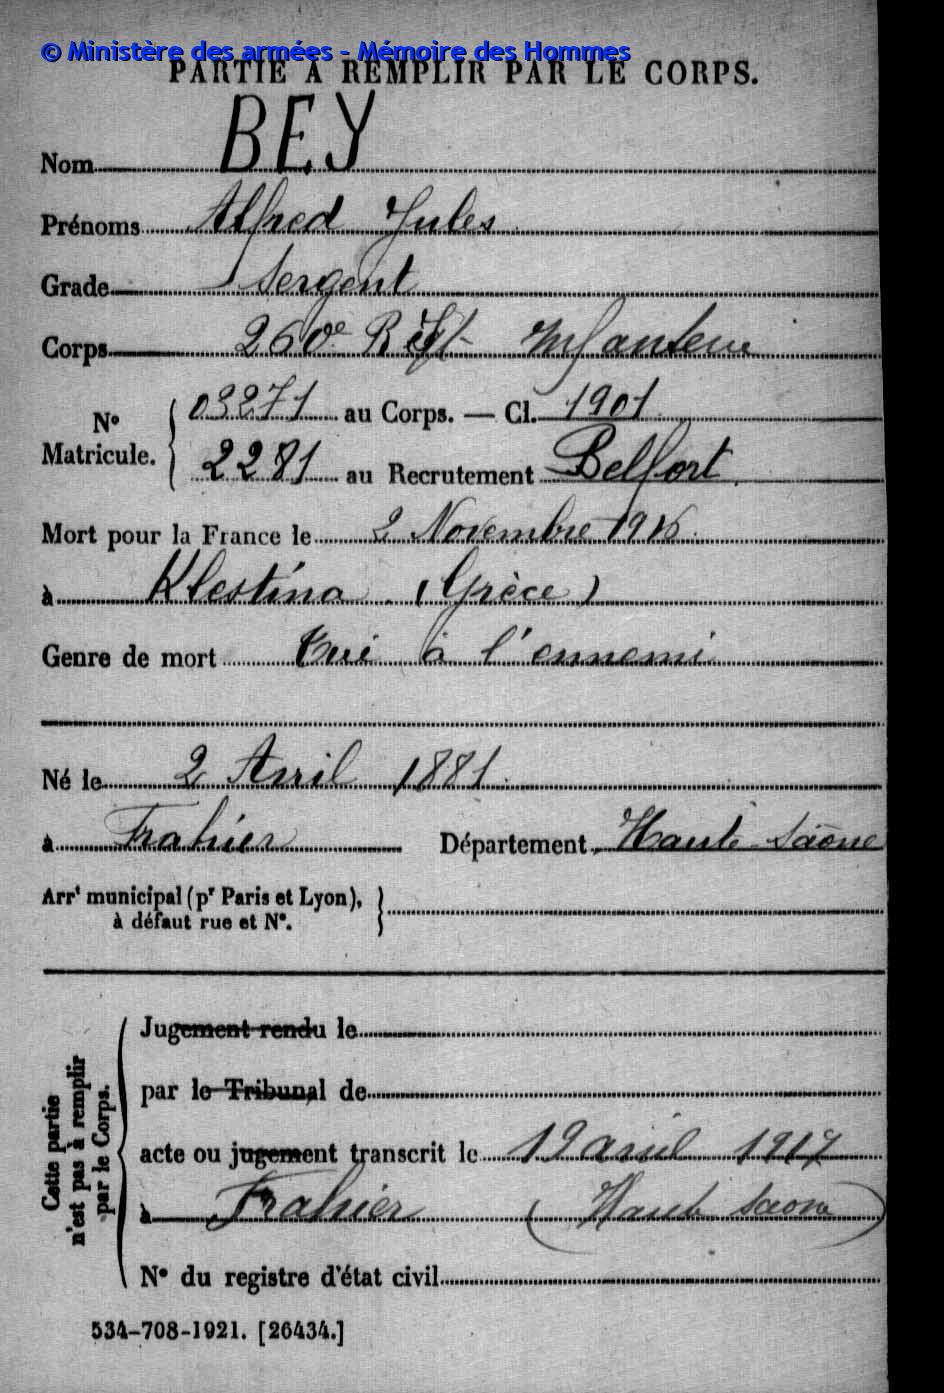 © Ministère des armées - Mémoire des Hommes
PARTIE À REMPLIR PAR LE CORPS.
Nom BEY
Prénoms Alfred Jules
Grade Sergent
Corps 260e Régt Infanterie
N° Matricule. { 03271 au Corps. — Cl. 1901
2281 au Recrutement Belfort.
Mort pour la France le 2 Novembre 1916
à Klestina (Grèce)
Genre de mort Tué à l'ennemi
Né le 2 Avril 1881
à Frahier Département Haute-Saône
Arrt municipal (pr Paris et Lyon),
à défaut rue et N°.
Cette partie
n'est pas à remplir
par le Corps.
Jugement rendu le
par le Tribunal de
acte ou jugement transcrit le 19 avril 1917
à Frahier (Haute Saone)
N° du registre d'état civil
534-708-1921. [26434.]